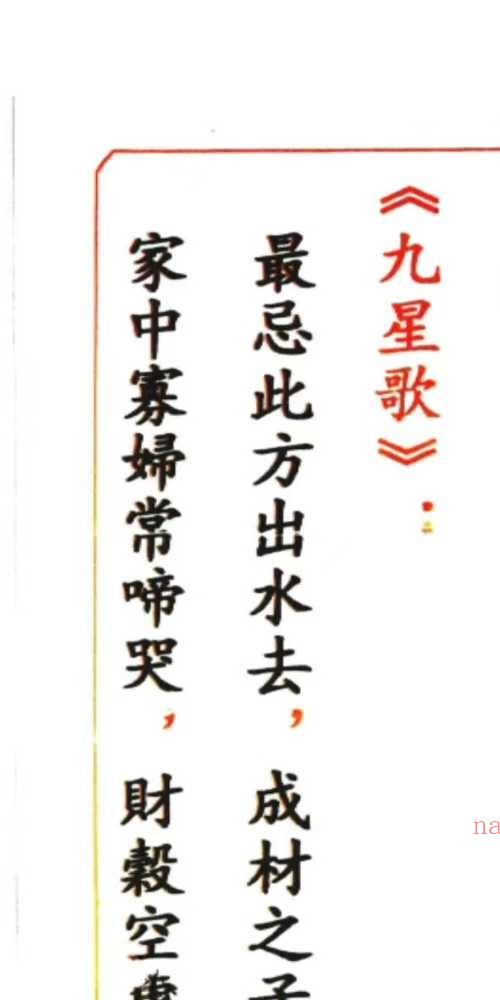 《九星歌》：
最忌此方出水去，成材之子
家中寡婦常啼哭，財穀空虛
na